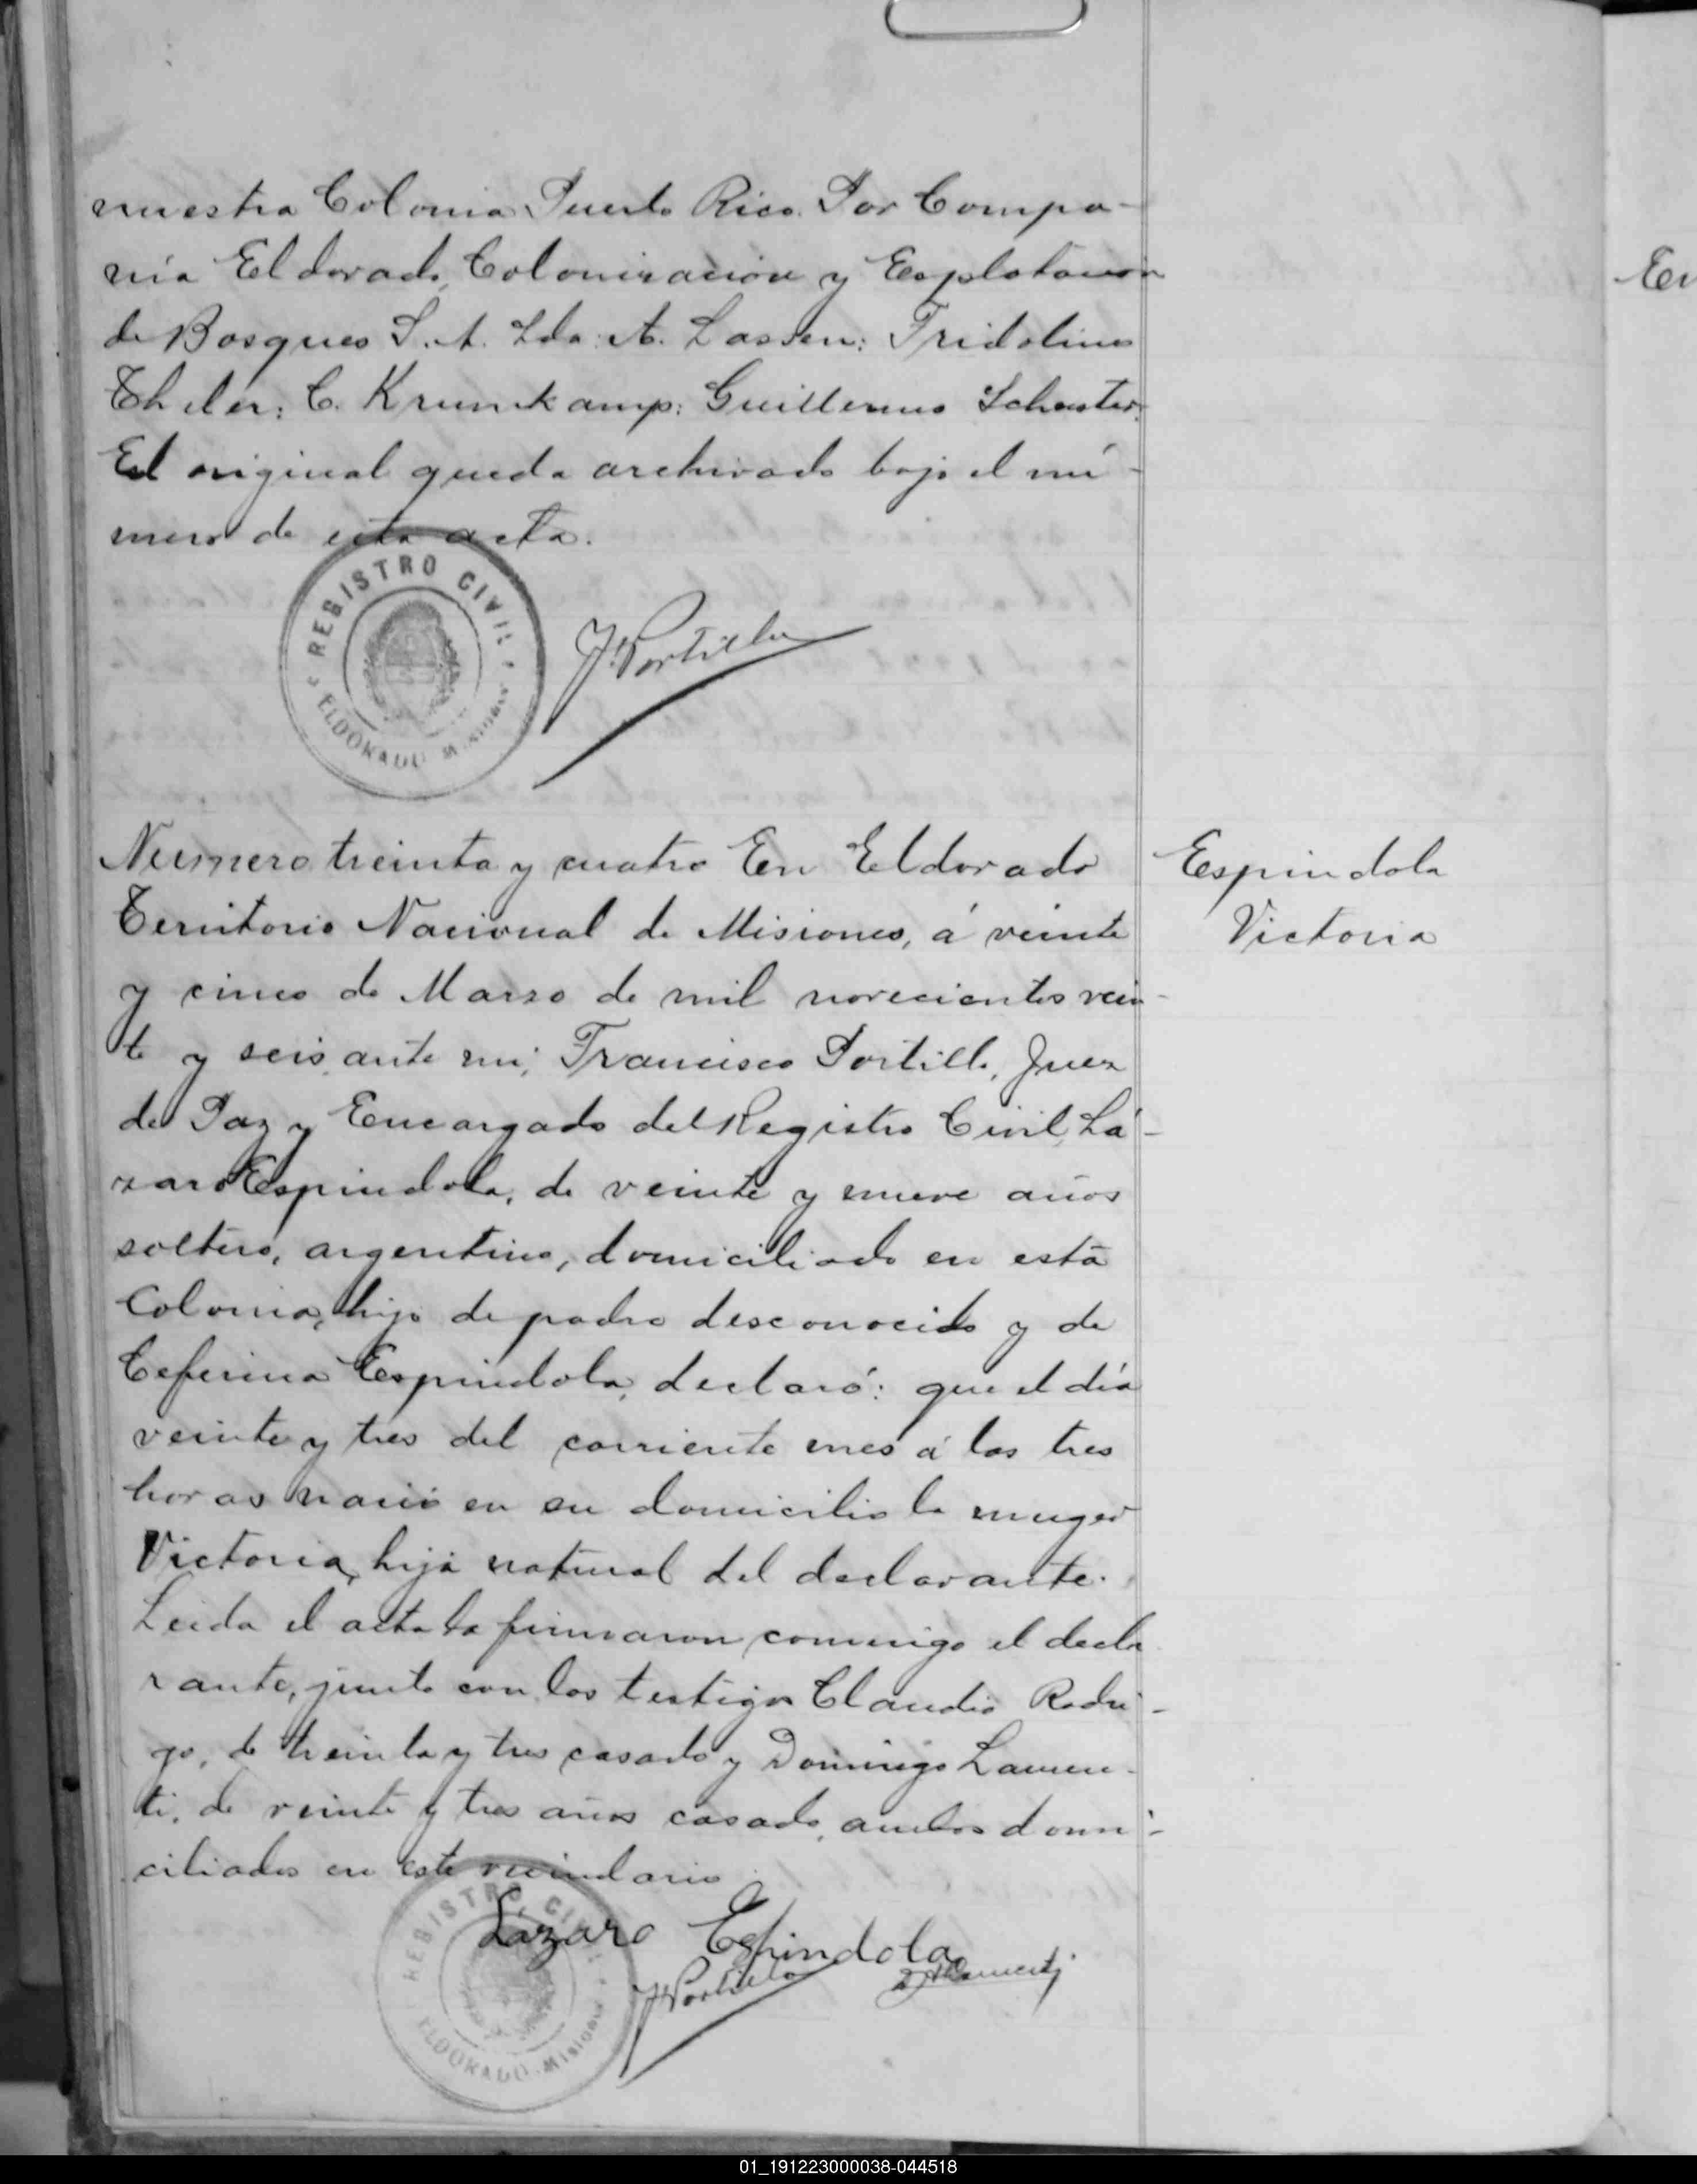 nuestra Colonia Puerto Rico. Por Compa-
nía Eldorado, Colonización y Explotacion
de Bosques S. A. Lda: A. Lassen: Fridolino
Theler: C. Krumkamp: Guillermo Schuster.
El original queda archivado bajo el nú-
mero de esta acta.
REGISTRO CIVIL
ELDORADO Misiones
F. Portillo
Número treinta y cuatro En Eldorado
Territorio Nacional de Misiones, á veinte
y cinco de Marzo de mil novecientos vein-
te y seis, ante mi, Francisco Portillo, Juez
de Paz y Encargado del Registro Civil, Lá-
zaro Espindola, de veinte y nueve años
soltero, argentino, domiciliado en esta
Colonia, hijo de padre desconocido y de
Ceferina Espindola, declaró: que el día
veinte y tres del corriente mes á las tres
horas nació en su domicilio la muger
Victoria, hija natural del declarante.
Leida el acta la firmaron conmigo el decla
rante, junto con los testigos Claudio Rodri-
go, de treinta y tres casado y Domingo Lamen-
ti, de veinte y tres años casado, ambos domi-
ciliados en este vecindario
Espindola
Victoria
REGISTRO CIVIL
ELDORADO Misiones
Lazaro Espindola
F. Portillo
En
01_191223000038-044518